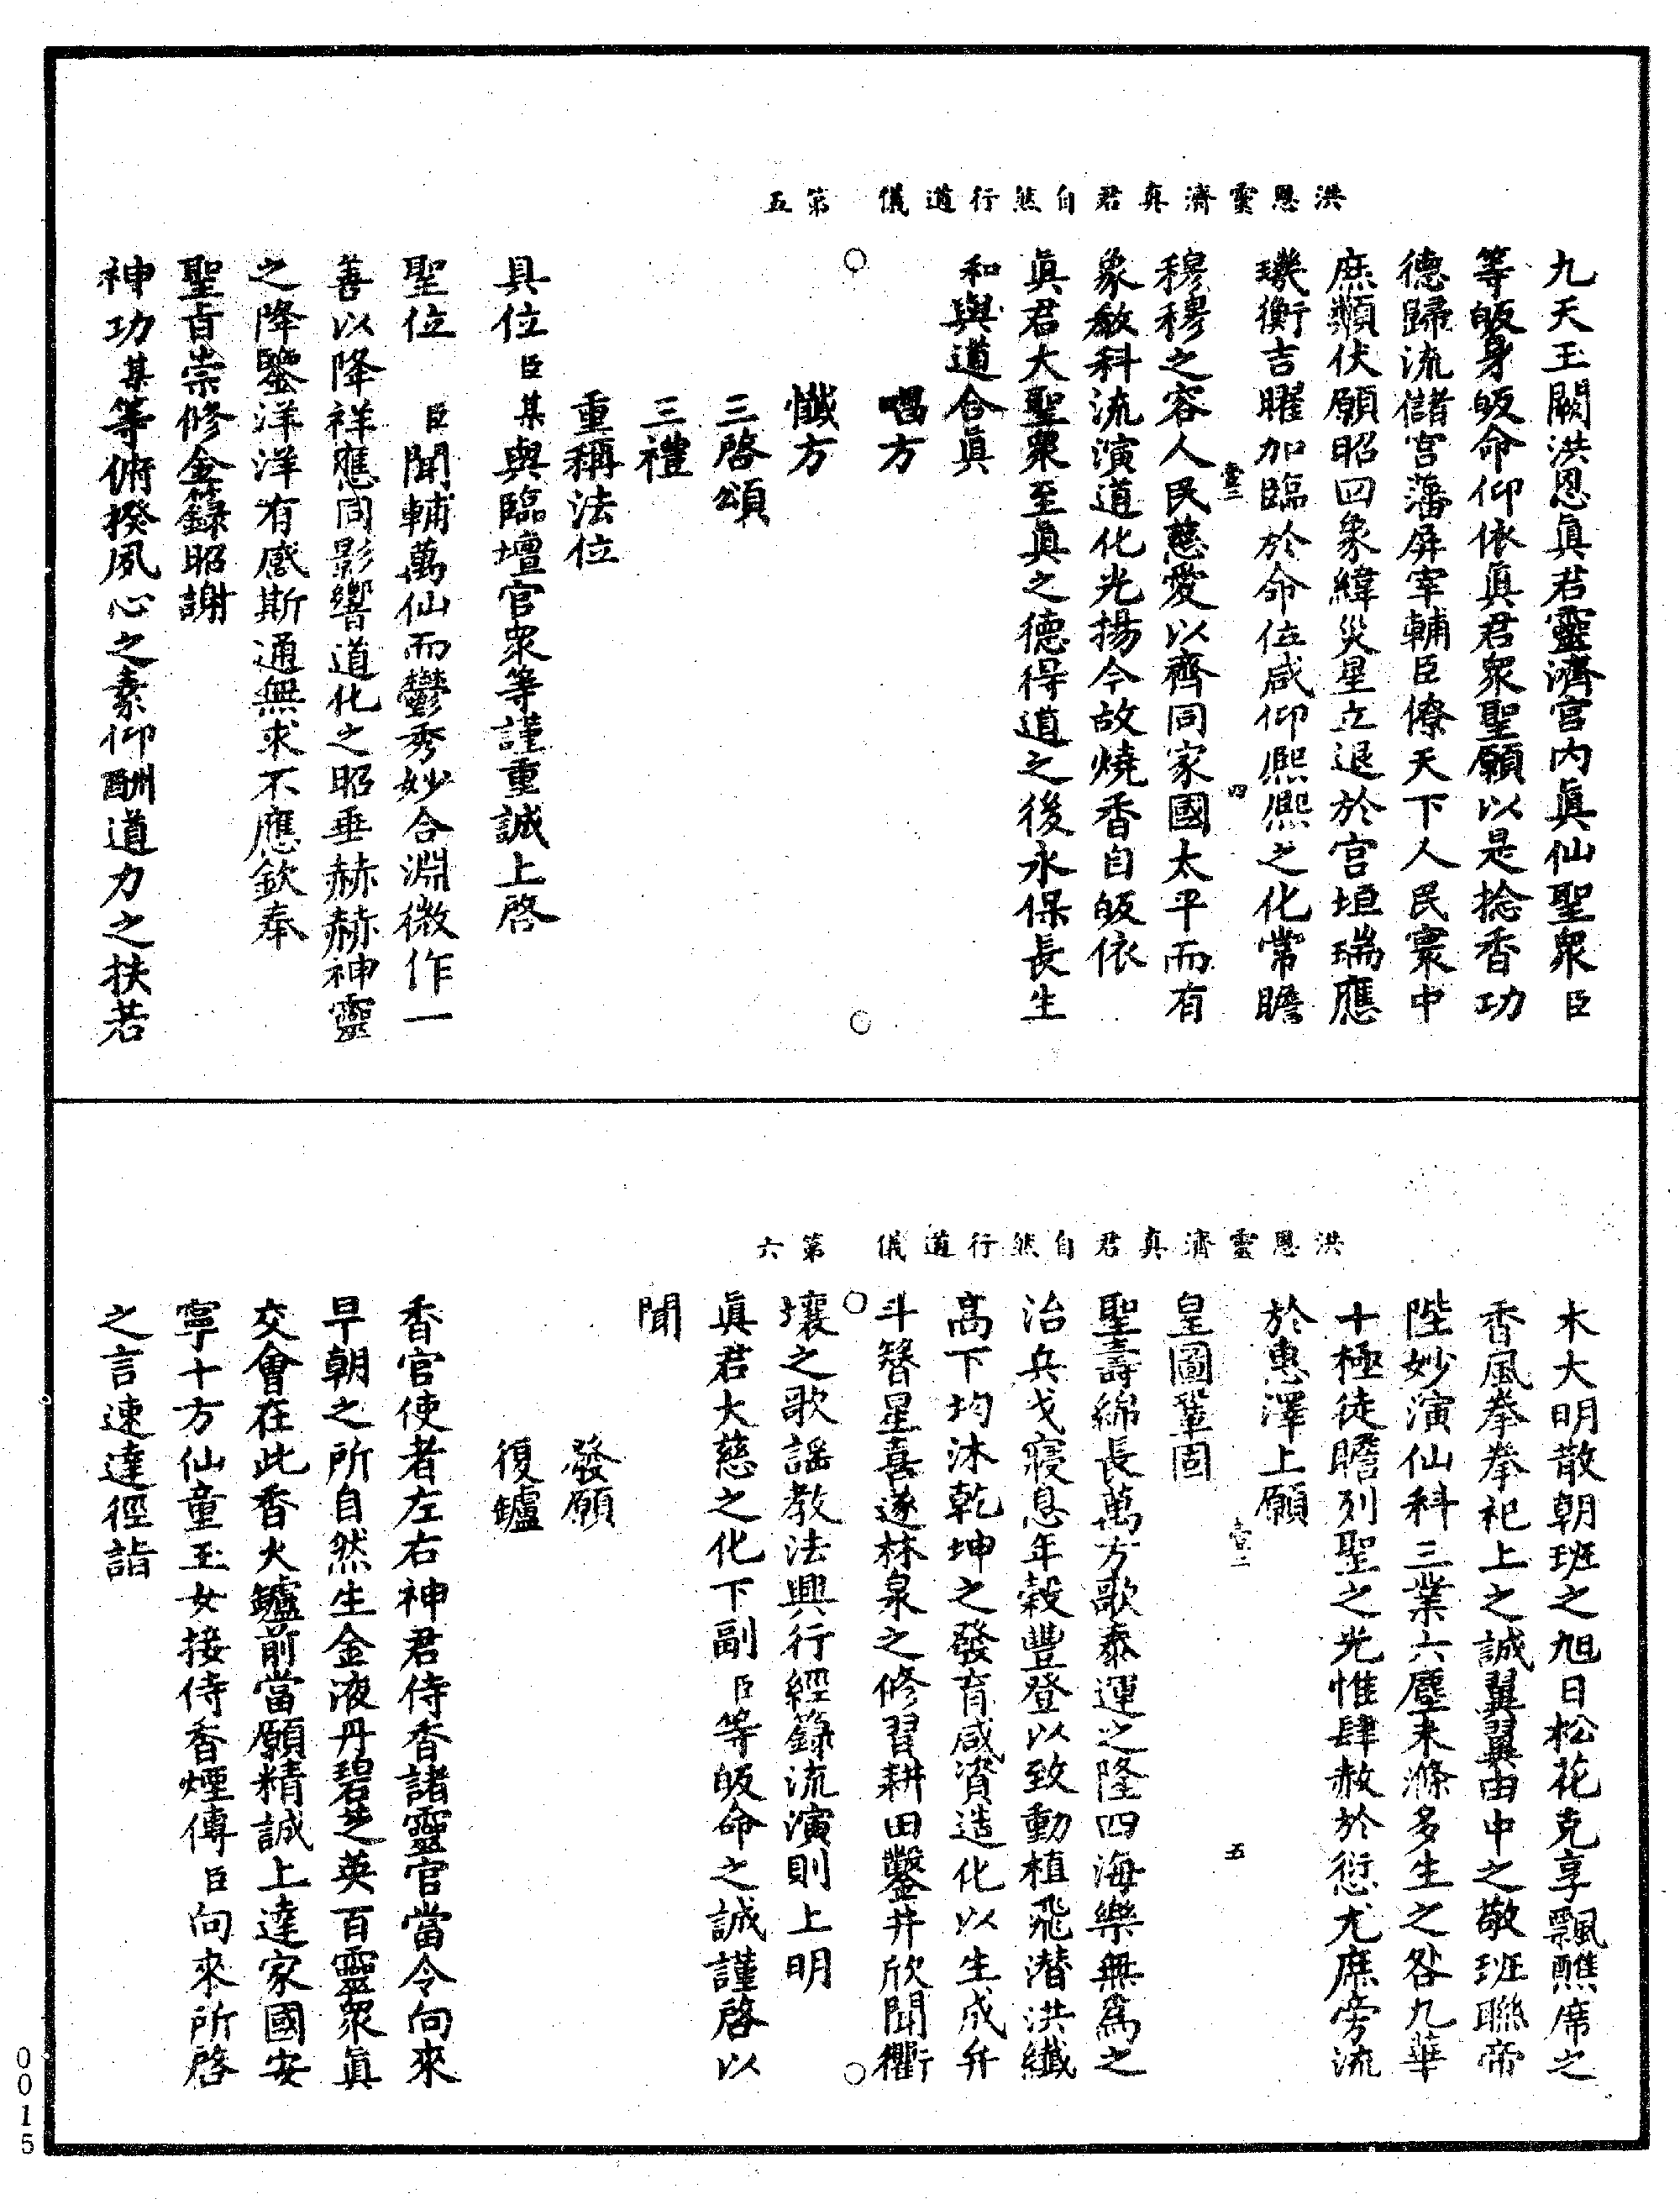 洪恩靈濟真君自然行道儀　第五
九天玉闕洪恩眞君靈濟宮內眞仙聖衆臣
等皈身皈命仰依眞君衆聖願以是捻香功
德歸流儲宮藩屏宰輔臣僚天下人民寰中
庶類伏願昭回象緯災星立退於宮垣瑞應
璣衡吉曜加臨於命位咸仰熙熙之化常瞻
壹二　四
穆穆之容人民慈愛以齊同家國太平而有
象敷科流演道化光揚今故燒香自皈依
眞君大聖衆至眞之德得道之後永保長生
和與道合眞
唱方
懺方
三啓頌
三禮
重稱法位
具位臣某與臨壇官衆等謹重誠上啓
聖位　臣聞輔萬仙而鬱秀妙合淵微作一
善以降祥應同影響道化之昭垂赫赫神靈
之降鑒洋洋有感斯通無求不應欽奉
聖旨崇修金籙昭謝
神功某等俯揆夙心之素仰酬道力之扶若
洪恩靈濟真君自然行道儀　第六
木大明散朝班之旭日松花克享飄醮席之
香風拳拳祀上之誠翼翼由中之敬班聯帝
陛妙演仙科三業六塵未滌多生之咎九華
十極徒瞻列聖之光惟肆赦於愆尤庶旁流
於惠澤上願
壹二　五
皇圖鞏固
聖壽綿長萬方歌泰運之隆四海樂無爲之
治兵戈寢息年穀豐登以致動植飛潛洪纖
高下均沐乾坤之發育咸資造化以生成弁
斗簪星喜遂林泉之修習耕田鑿井欣聞衢
壤之歌謡教法興行經籙流演則上明
眞君大慈之化下副臣等皈命之誠謹啓以
聞
發願
復鑪
香官使者左右神君侍香諸靈官當令向來
早朝之所自然生金液丹碧芝英百靈衆眞
交會在此香火鑪前當願精誠上達家國安
寧十方仙童玉女接侍香煙傳臣向來所啓
之言速達徑詣
0015